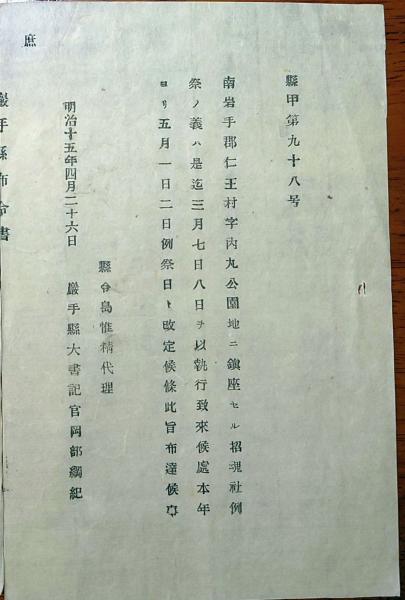 縣甲第九十八号
南岩手郡仁王村字内丸公園地ニ鎮座セル招魂社例
祭ノ義ハ是迄三月七日八日ヲ以執行致來候處本年
ヨリ五月一日二日例祭日ト改定候條此旨布達候叓
明治十五年四月二十六日
縣令島惟精代理
巖手縣大書記官岡部綱紀
庶
巖手縣布令書